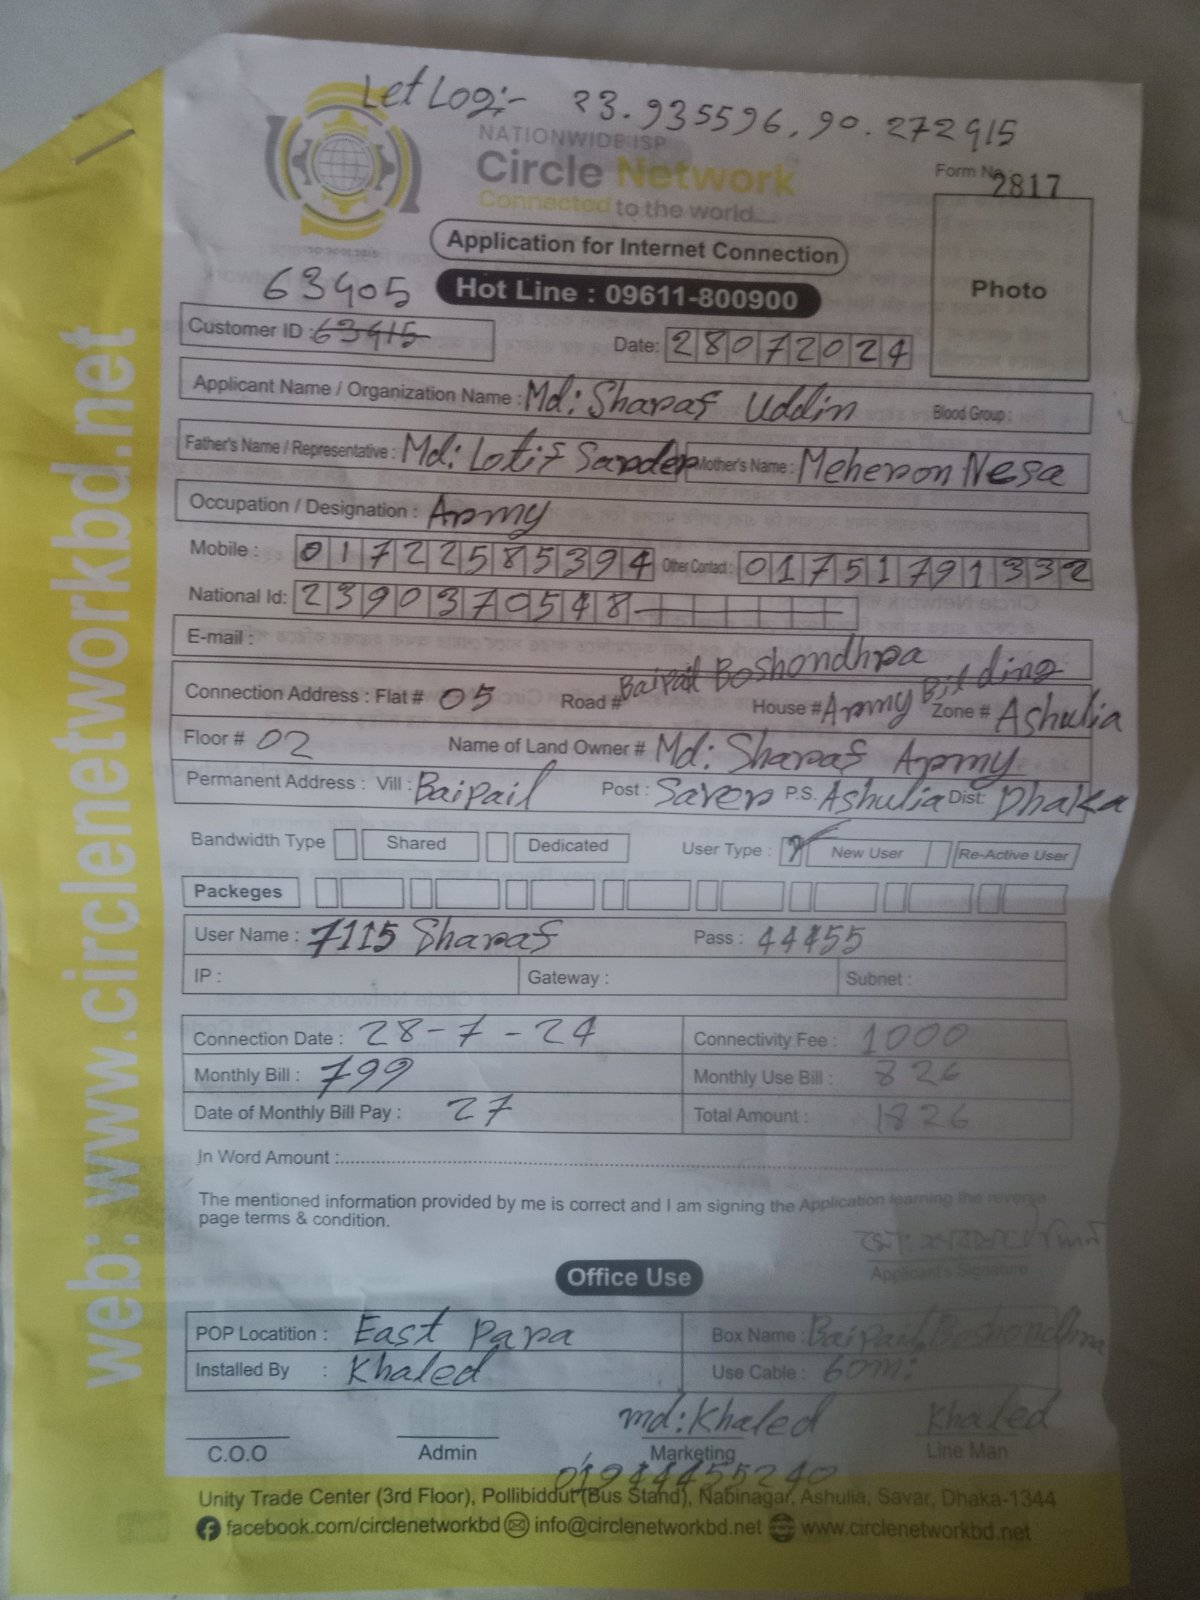 Let Log:- 23.935596, 90.272915
NATIONWIDE ISP
Circle Network
Connected to the world....
Form No 2817
Application for Internet Connection
Photo
63405
Hot Line : 09611-800900
Customer ID : 63415
Date: 28072024
Applicant Name / Organization Name : Md: Sharaf Uddin Blood Group :
Father's Name / Representative : Md: Lotif Sarder Mother's Name : Meheron Nesa
Occupation / Designation : Army
Mobile : 01722585394 Other Contact : 01751791332
National Id: 2390370548
E-mail :
Connection Address : Flat # 05 Road # Baipail Boshondhra House # Army Bilding Zone # Ashulia
Floor # 02 Name of Land Owner # Md: Sharaf Army
Permanent Address : Vill : Baipail Post : Saver P.S. Ashulia Dist: Dhaka
Bandwidth Type Shared Dedicated User Type : New User Re-Active User
Packeges
User Name : 7115 Sharaf Pass : 44455
IP : Gateway : Subnet :
Connection Date : 28-7-24 Connectivity Fee : 1000
Monthly Bill : 799 Monthly Use Bill : 826
Date of Monthly Bill Pay : 27 Total Amount : 1826
In Word Amount :
The mentioned information provided by me is correct and I am signing the Application learning the reverse
page terms & condition.
Applicant's Signature
Office Use
POP Locatition : East Para Box Name : Baipail Boshondhra
Installed By : Khaled Use Cable : 60m:
md: Khaled Khaled
C.O.O Admin Marketing Line Man
01944455240
Unity Trade Center (3rd Floor), Pollibiddut (Bus Stand), Nabinagar, Ashulia, Savar, Dhaka-1344
facebook.com/circlenetworkbd info@circlenetworkbd.net www.circlenetworkbd.net
web: www.circlenetworkbd.net